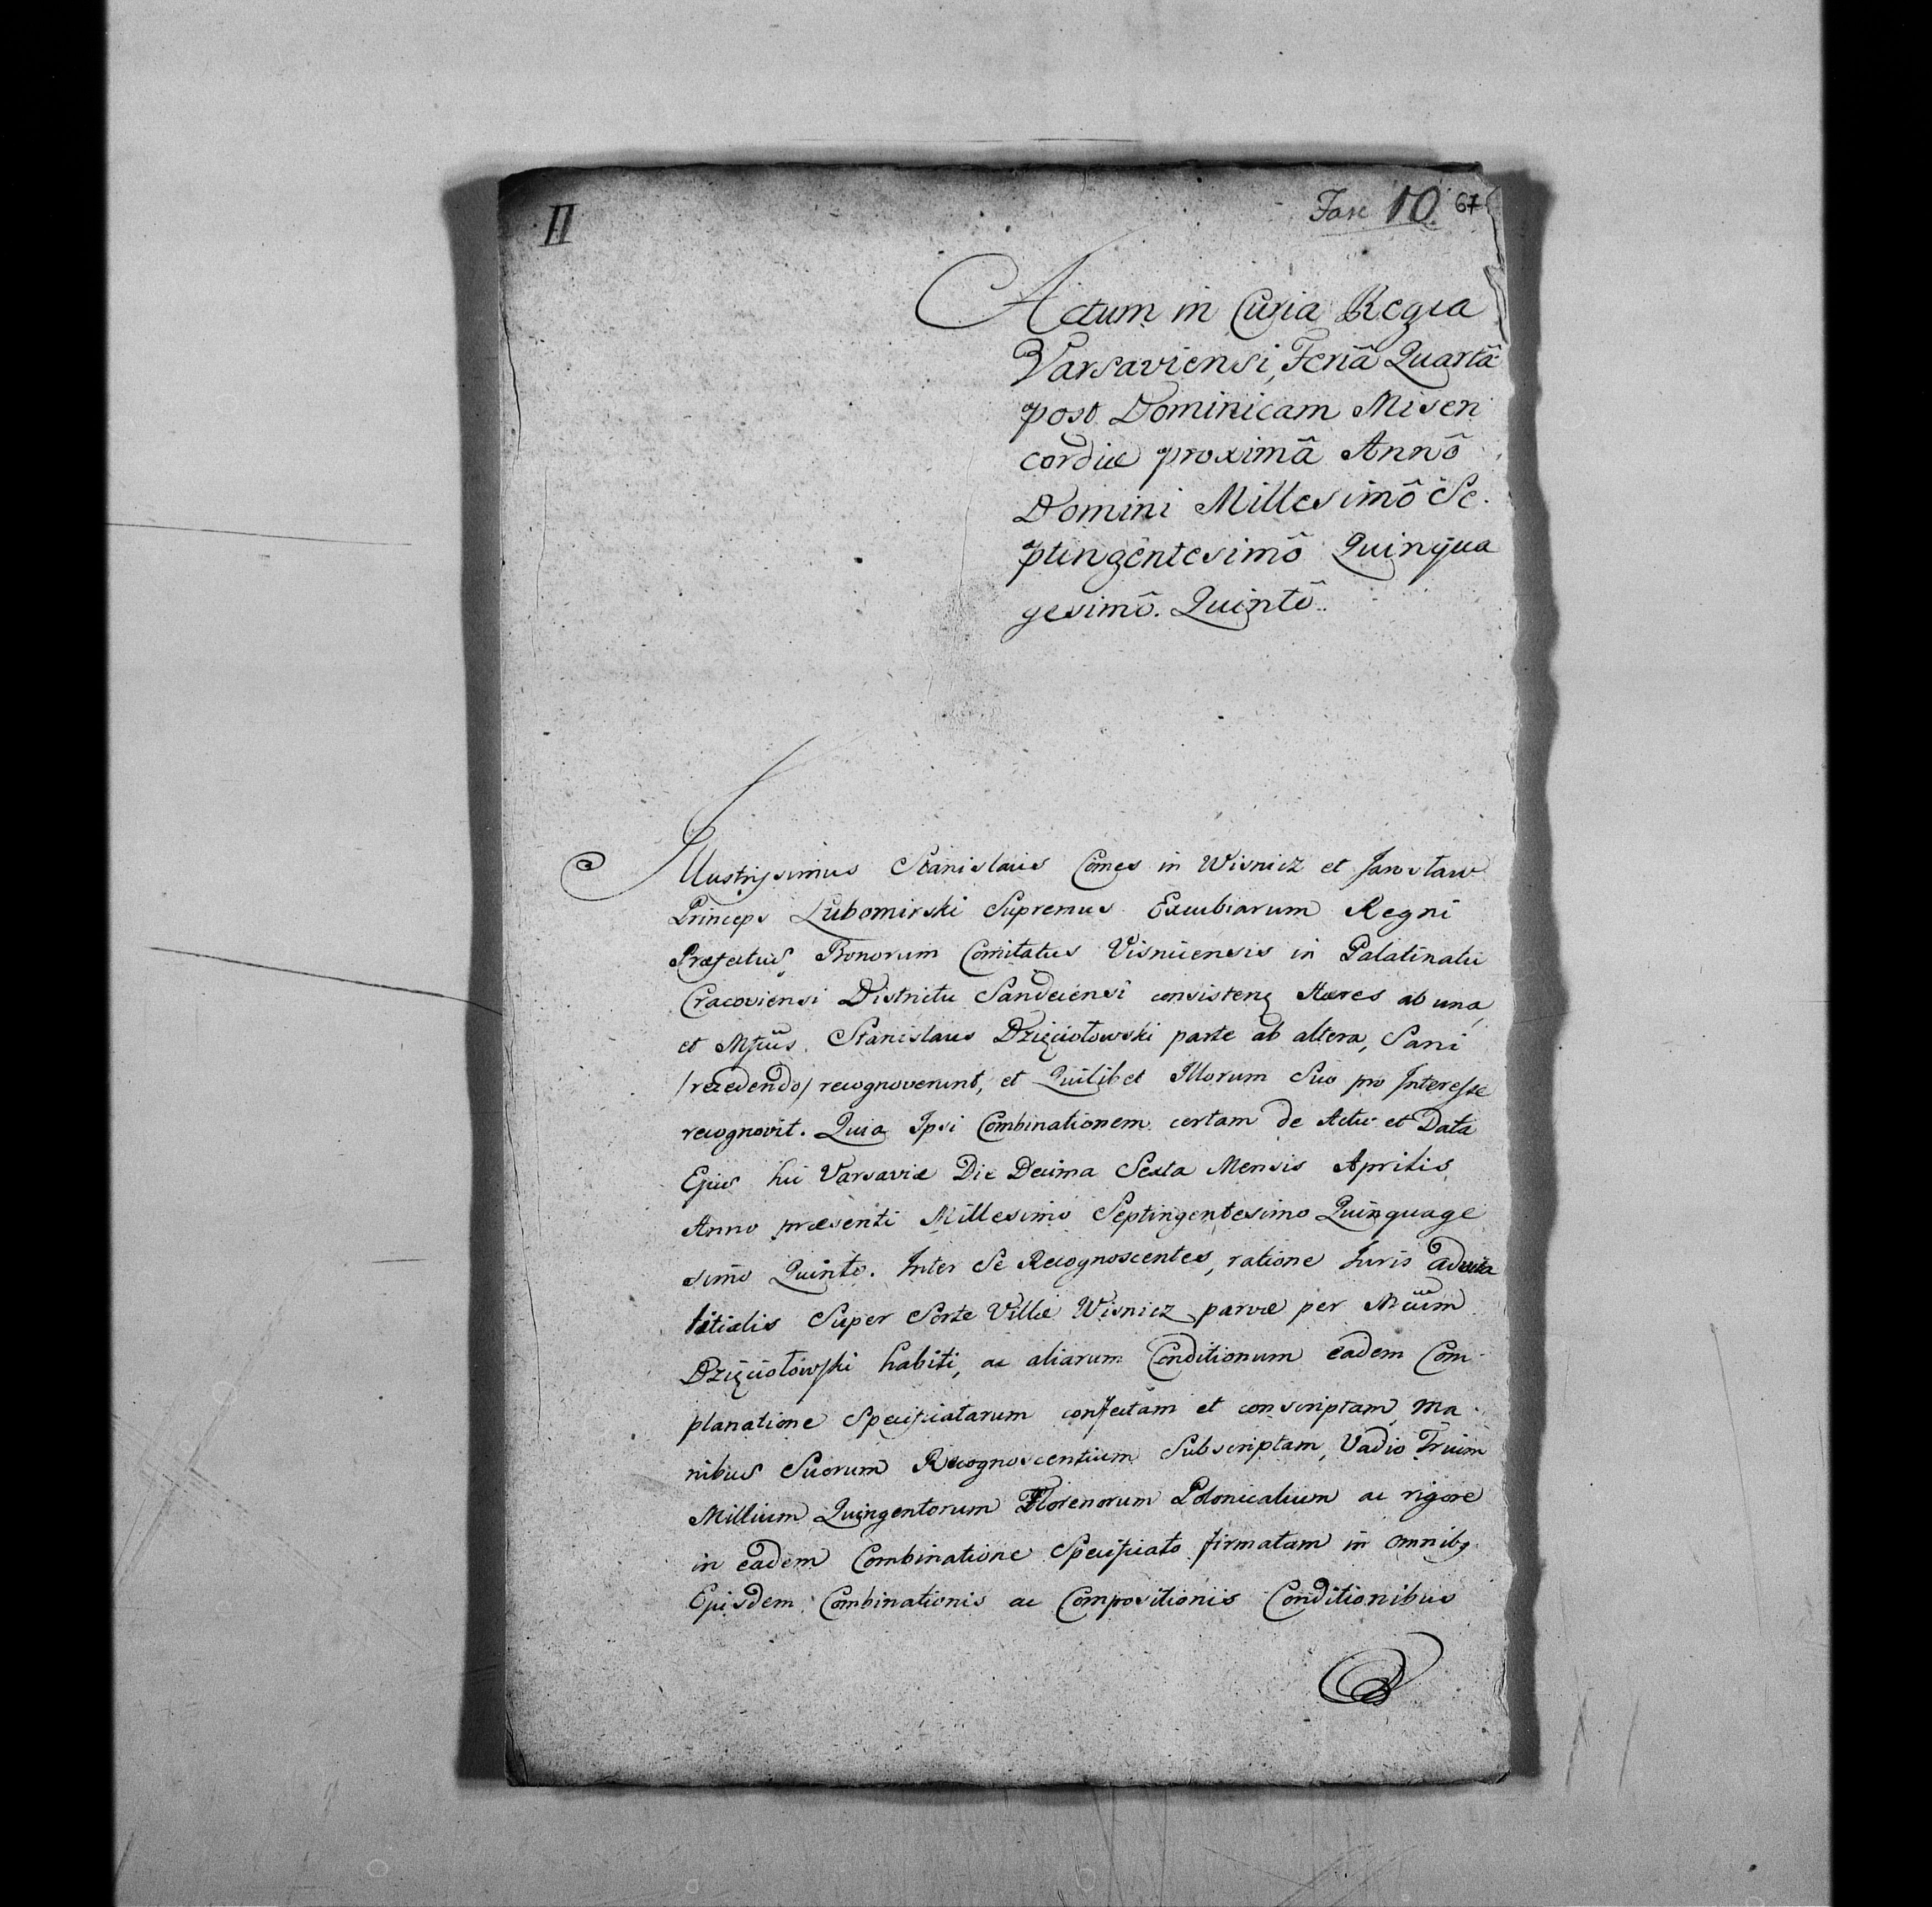 II
Fasc 10. 67
Actum in Curia Regia
Varsaviensi, Feriâ Quartâ
post Dominicam Miseri
cordiæ proximâ Annô
Domini Millesimô Se
ptingentesimô Quinqua
gesimô. Quintô.
Illustrissimus Stanislaus Comes in Wisnicz et Jarosław
Princeps Lubomirski Supremus Excubiarum Regni
Præfectus, Bonorum Comitatus Visnicensis in Palatinatu
Cracoviensi Districtu Sandecensi consisten Hæres ab una,
et Mfcus. Stanislaus Dzięciołowski parte ab altera, Sani
/recedendo/ recognoverunt, et Quilibet Illorum Suo pro Interesse
recognovit. Quia Ipsi Combinationem certam de Actu et Data
Ejus hic Varsaviæ Die Decima Sexta Mensis Aprilis
Anno præsenti Millesimo Septingentesimo Quinquage
simo Quinto. Inter Se Recognoscentes, ratione Juris advita
litialis Super Sorte Villæ Wisnicz parvæ per
Dzięciołowski habiti, ac aliarum Conditionum eadem Com
planatione Specificatarum confectam et conscriptam, Ma
nibus Suorum Recognoscentium Subscriptam, Vadio Trium
Millium Quingentorum Florenorum Polonicalium ac rigore
in eadem Combinatione Specificato firmatam in omnibq
Ejusdem Combinationis ac Compositionis Conditionibus